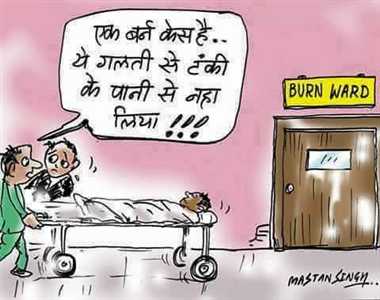 एक बर्न केस है..
ये गलती से टंकी
के पानी से नहा
लिया !!!
BURN WARD
MASTAN SINGH..